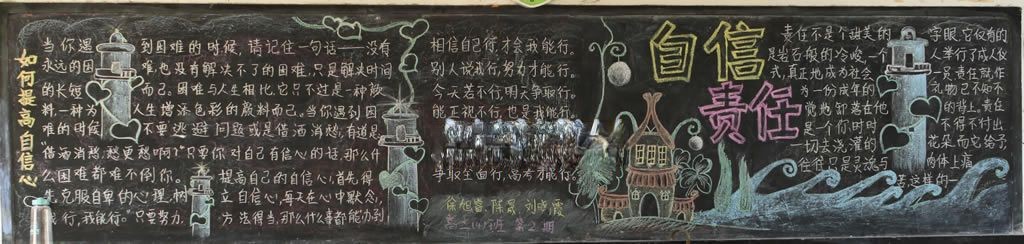 如何提高自信心
当你遇到困难的时候,请记住一句话——没有
永远的困难,也没有解决不了的困难,只是解决时间
的长短而已。困难与人生相比,它只不过是一种颜
料,一种为人生增添色彩的颜料而已。当你遇到困
难的时候,不要逃避问题或是借酒消愁,有道是
"借酒消愁愁更愁啊!"只要你对自己有信心的话,那么什
么困难都难不倒你。提高自己的自信心,首先得
先克服自卑的心理,树立自信心,每天在心中默念,
我行,我能行。"只要努力,方法得当,那么什么事都能办到
相信自己行,才会我能行。
别人说我行,努力才能行。
今天若不行,明天争取行。
能正视不行,也是我能行。
争取全面行,高考才能行。
徐旭萱、陈晟、刘晓霞
高二(4)班 第2期
自信
责任
责任不是一个甜美的字眼,它仅有的
是岩石般的冷峻。一个人举行了成人仪
式,真正地成为社会一员,责任就作
为一份成年的礼物已不知不
觉地卸落在他的背上。责任
是一个你时时不得不付出
一切去浇灌的花朵,而它给了
往往只是灵魂与肉体上痛
苦这样的一